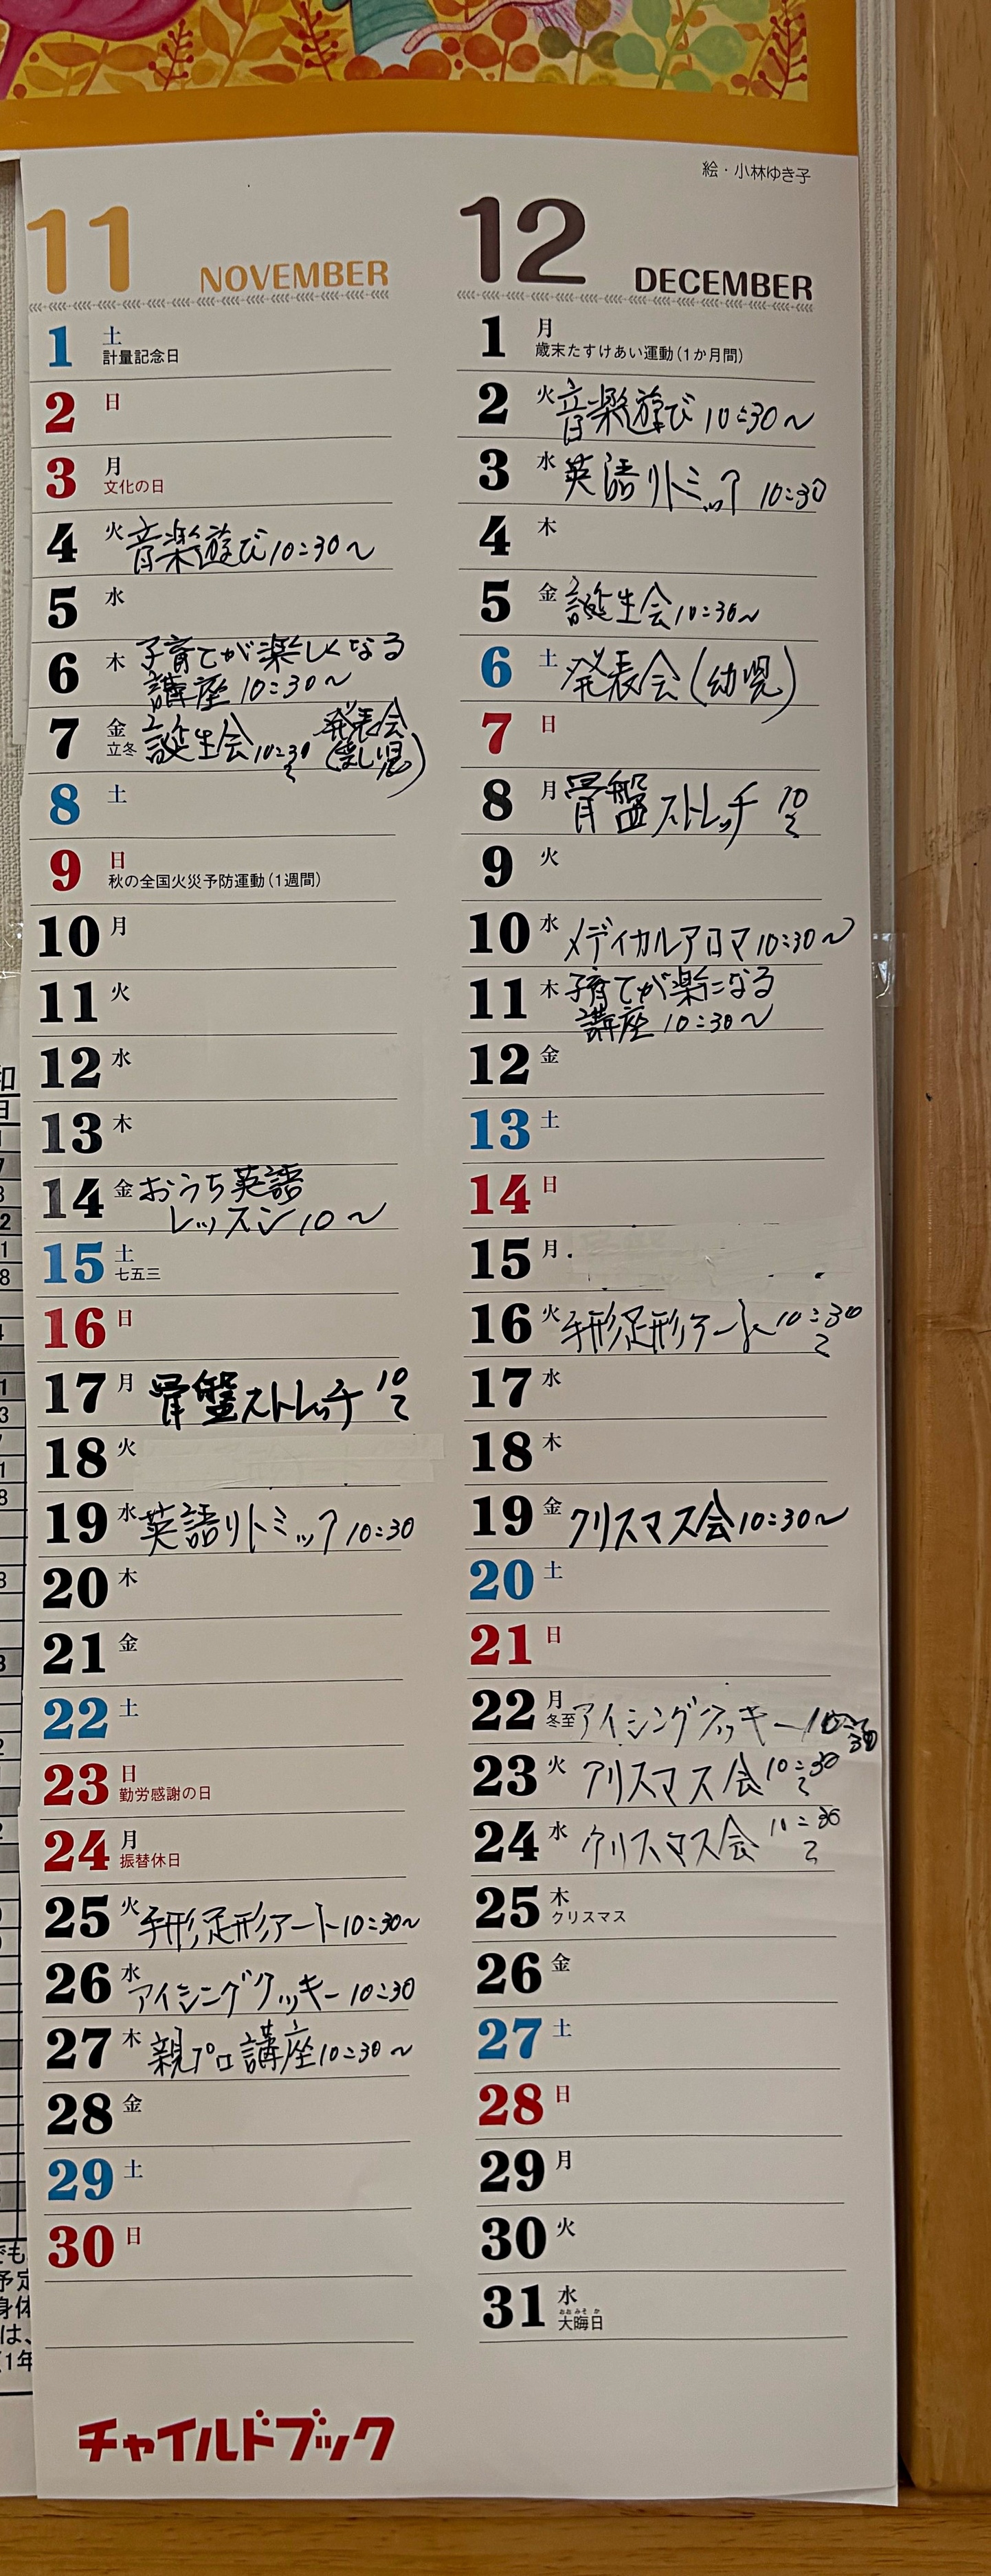 絵・小林ゆき子
11 NOVEMBER
1 土 計量記念日
2 日
3 月 文化の日
4 火 音楽遊び 10:30〜
5 水
6 木 子育てが楽しくなる
講座 10:30〜
7 金 立冬 誕生会 10:30〜 発表会
8 土
9 日 秋の全国火災予防運動(1週間)
10 月
11 火
12 水
13 木
14 金 おうち英語
レッスン 10〜
15 土 七五三
16 日
17 月 骨盤ストレッチ 10〜
18 火
19 水 英語リトミック 10:30
20 木
21 金
22 土
23 日 勤労感謝の日
24 月 振替休日
25 火 手形足形アート 10:30〜
26 水 アイシングクッキー 10:30
27 木 親プロ講座 10:30〜
28 金
29 土
30 日
12 DECEMBER
1 月 歳末たすけあい運動(1か月間)
2 火 音楽遊び 10:30〜
3 水 英語リトミック 10:30
4 木
5 金 誕生会 10:30〜
6 土 発表会(幼児)
7 日
8 月 骨盤ストレッチ 10〜
9 火
10 水 メディカルアロマ 10:30〜
11 木 子育てが楽になる
講座 10:30〜
12 金
13 土
14 日
15 月
16 火 手形足形アート 10:30〜
17 水
18 木
19 金 クリスマス会 10:30〜
20 土
21 日
22 月 冬至 アイシングクッキー
23 火 クリスマス会 10:30〜
24 水 クリスマス会
25 木 クリスマス
26 金
27 土
28 日
29 月
30 火
31 水 大晦日
おおみそか
チャイルドブック